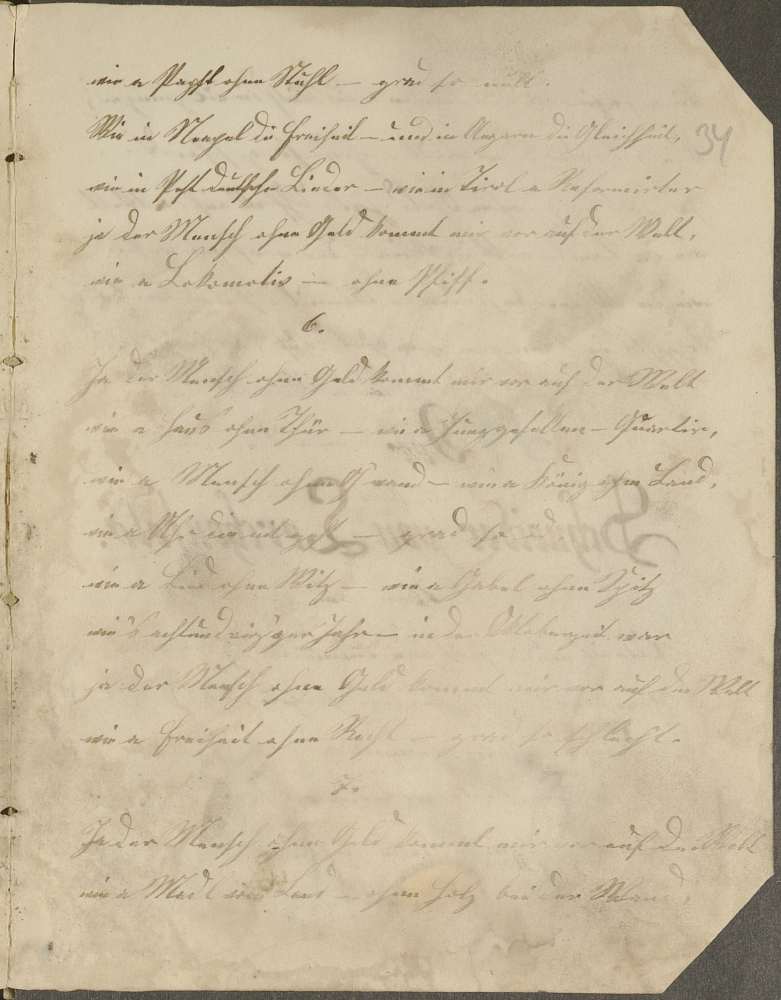 wie a Papst ohne Stuhl – grad so null.
34
Wie in Neapel die Freiheit – und in Ungarn die Gleichheit,
wie in Pest deutsche Lieder – wie in Tirol a Reformirter
ja der Mensch ohne Geld kommt mir vor auf der Welt,
wie a Lokomotiv – ohne Pfiff.
6.
Ja der Mensch ohne Geld kommt mir vor auf der Welt
wie a Haus ohne Thür – wie a Junggesellen-Quartir,
wie a Mensch ohne – wie a König ohne Land,
wie a Uhr die nit geht – grad so
wie a Lied ohne Witz – wie a Gabel ohne Spitz
wie's achtundvirz'ger Jahr – in der Oktoberzeit war
ja der Mensch ohne Geld kommt mir vor auf der Welt
wie a Freiheit ohne Recht – grad so schlecht.
7.
Ja der Mensch ohne Geld kommt mir vor auf der Welt
wie a Madl vom Land – ohne Holz bei der Wand,